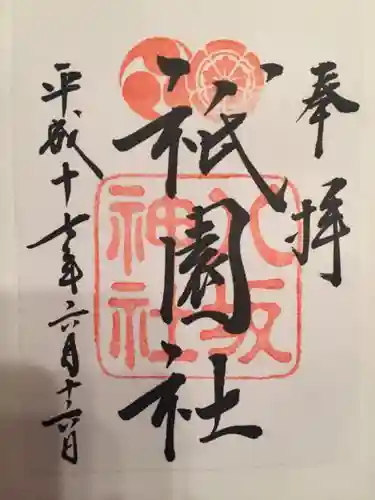 奉拝
八坂神社
祇園社
平成十七年六月十六日